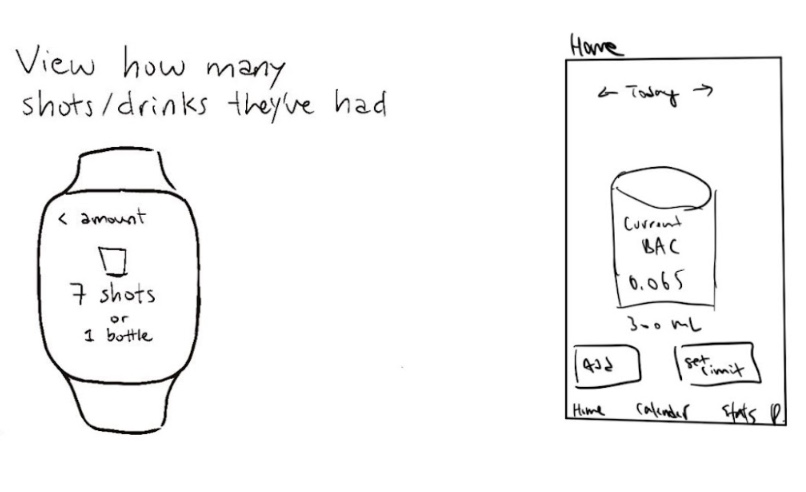 View how many
shots/drinks they've had
< amount
7 shots
or
1 bottle
Home
← Today →
Current
BAC
0.065
300 mL
Add
set limit
Home Calender Stats P.